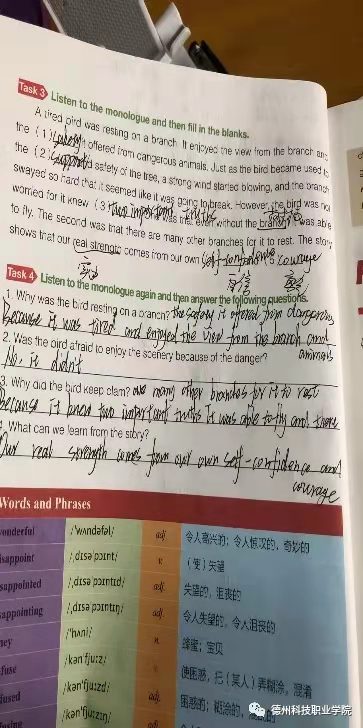 Task 3 Listen to the monologue and then fill in the blanks.
A tired bird was resting on a branch. It enjoyed the view from the branch and
the (1) safety it offered from dangerous animals. Just as the bird became used to
the (2) support and safety of the tree, a strong wind started blowing, and the branch
swayed so hard that it seemed like it was going to break. However, the bird was not
worried for it knew (3) two important truths
was that even without the branch it was able
to fly. The second was that there are many other branches for it to rest. The story
shows that our real strength comes from our own self-confidence courage
自信
Task 4 Listen to the monologue again and then answer the following questions.
1. Why was the bird resting on a branch? the safety it offered from dangerous
Because it was tired and enjoyed the view from the branch and
animals
2. Was the bird afraid to enjoy the scenery because of the danger?
No, it didn't
3. Why did the bird keep clam? are many other branches for it to rest
Because it knew two important truths it was able to fly and there
4. What can we learn from the story?
Our real strength comes from our own self-confidence and
courage
Words and Phrases
wonderful /ˈwʌndəfəl/ adj. 令人高兴的；令人惊叹的，奇妙的
isappoint /ˌdɪsəˈpɔɪnt/ v. （使）失望
sappointed /ˌdɪsəˈpɔɪntɪd/ adj. 失望的，沮丧的
sappointing /ˌdɪsəˈpɔɪntɪŋ/ adj. 令人失望的，令人沮丧的
ney /ˈhʌni/ n. 蜂蜜；宝贝
fuse /kənˈfjuːz/ v. 使困惑，把（某人）弄糊涂，混淆
fused /kənˈfjuːzd/ adj. 困惑的；糊涂的，
fusing /kənˈfjuːzɪŋ/
德州科技职业学院